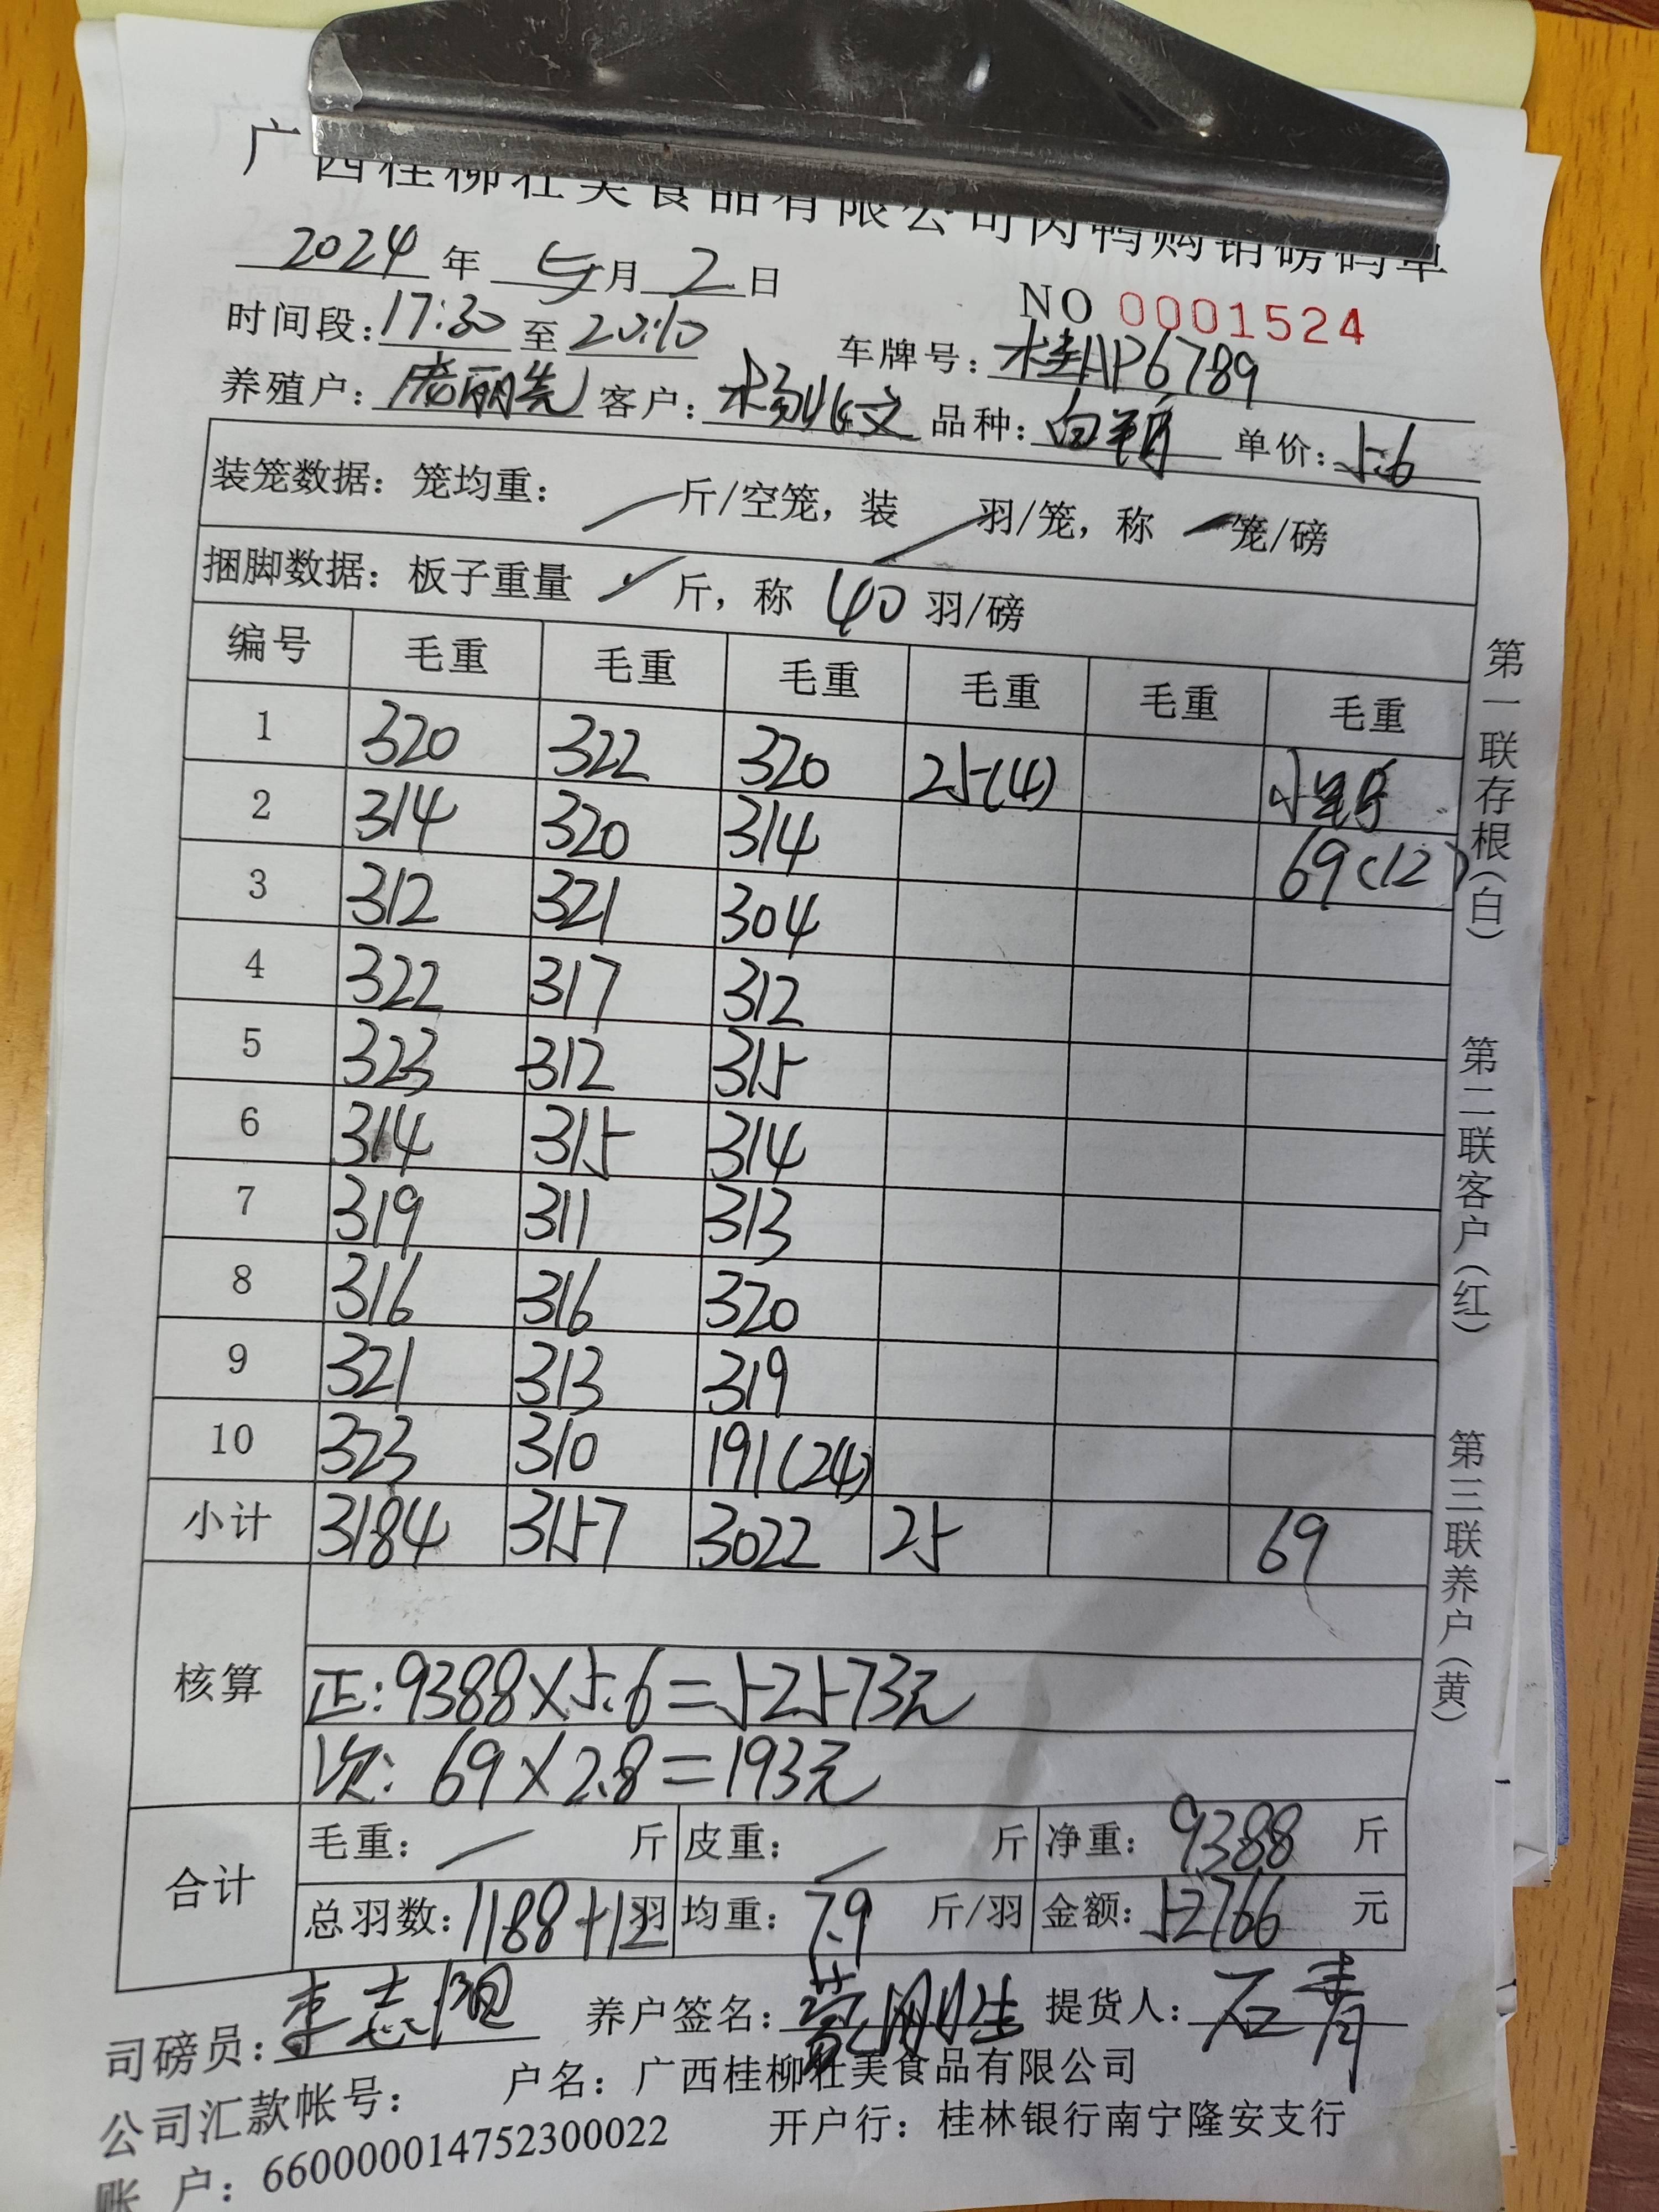 广西桂柳壮美食品有限公司肉鸭购销磅码单
2024 年 5 月 2 日
NO 0001524
时间段: 17:30 至 20:10 车牌号: 桂AP6789
养殖户: 丽先 客户: 杨业文 品种: 白鸭 单价: 5.6
装笼数据: 笼均重: / 斤/空笼, 装 / 羽/笼, 称 / 笼/磅
捆脚数据: 板子重量 / 斤, 称 40 羽/磅
编号 毛重 毛重 毛重 毛重 毛重 毛重
1 320 322 320 25(4) 小鸭
2 314 320 314 69(12)
3 312 321 304
4 322 317 312
5 323 312 315
6 314 315 314
7 319 311 313
8 316 316 320
9 321 313 319
10 323 310 191(24)
小计 3184 3157 3022 25 69
核算
正: 9388×5.6=52573元
次: 69×2.8=193元
合计
毛重: / 斤 皮重: / 斤 净重: 9388 斤
总羽数: 1188+12 羽 均重: 7.9 斤/羽 金额: 52766 元
司磅员: 李志 养户签名: 提货人: 石青
公司汇款帐号: 户名: 广西桂柳壮美食品有限公司
账 户: 660000014752300022 开户行: 桂林银行南宁隆安支行
第一联存根(白) 第二联客户(红) 第三联养户(黄)